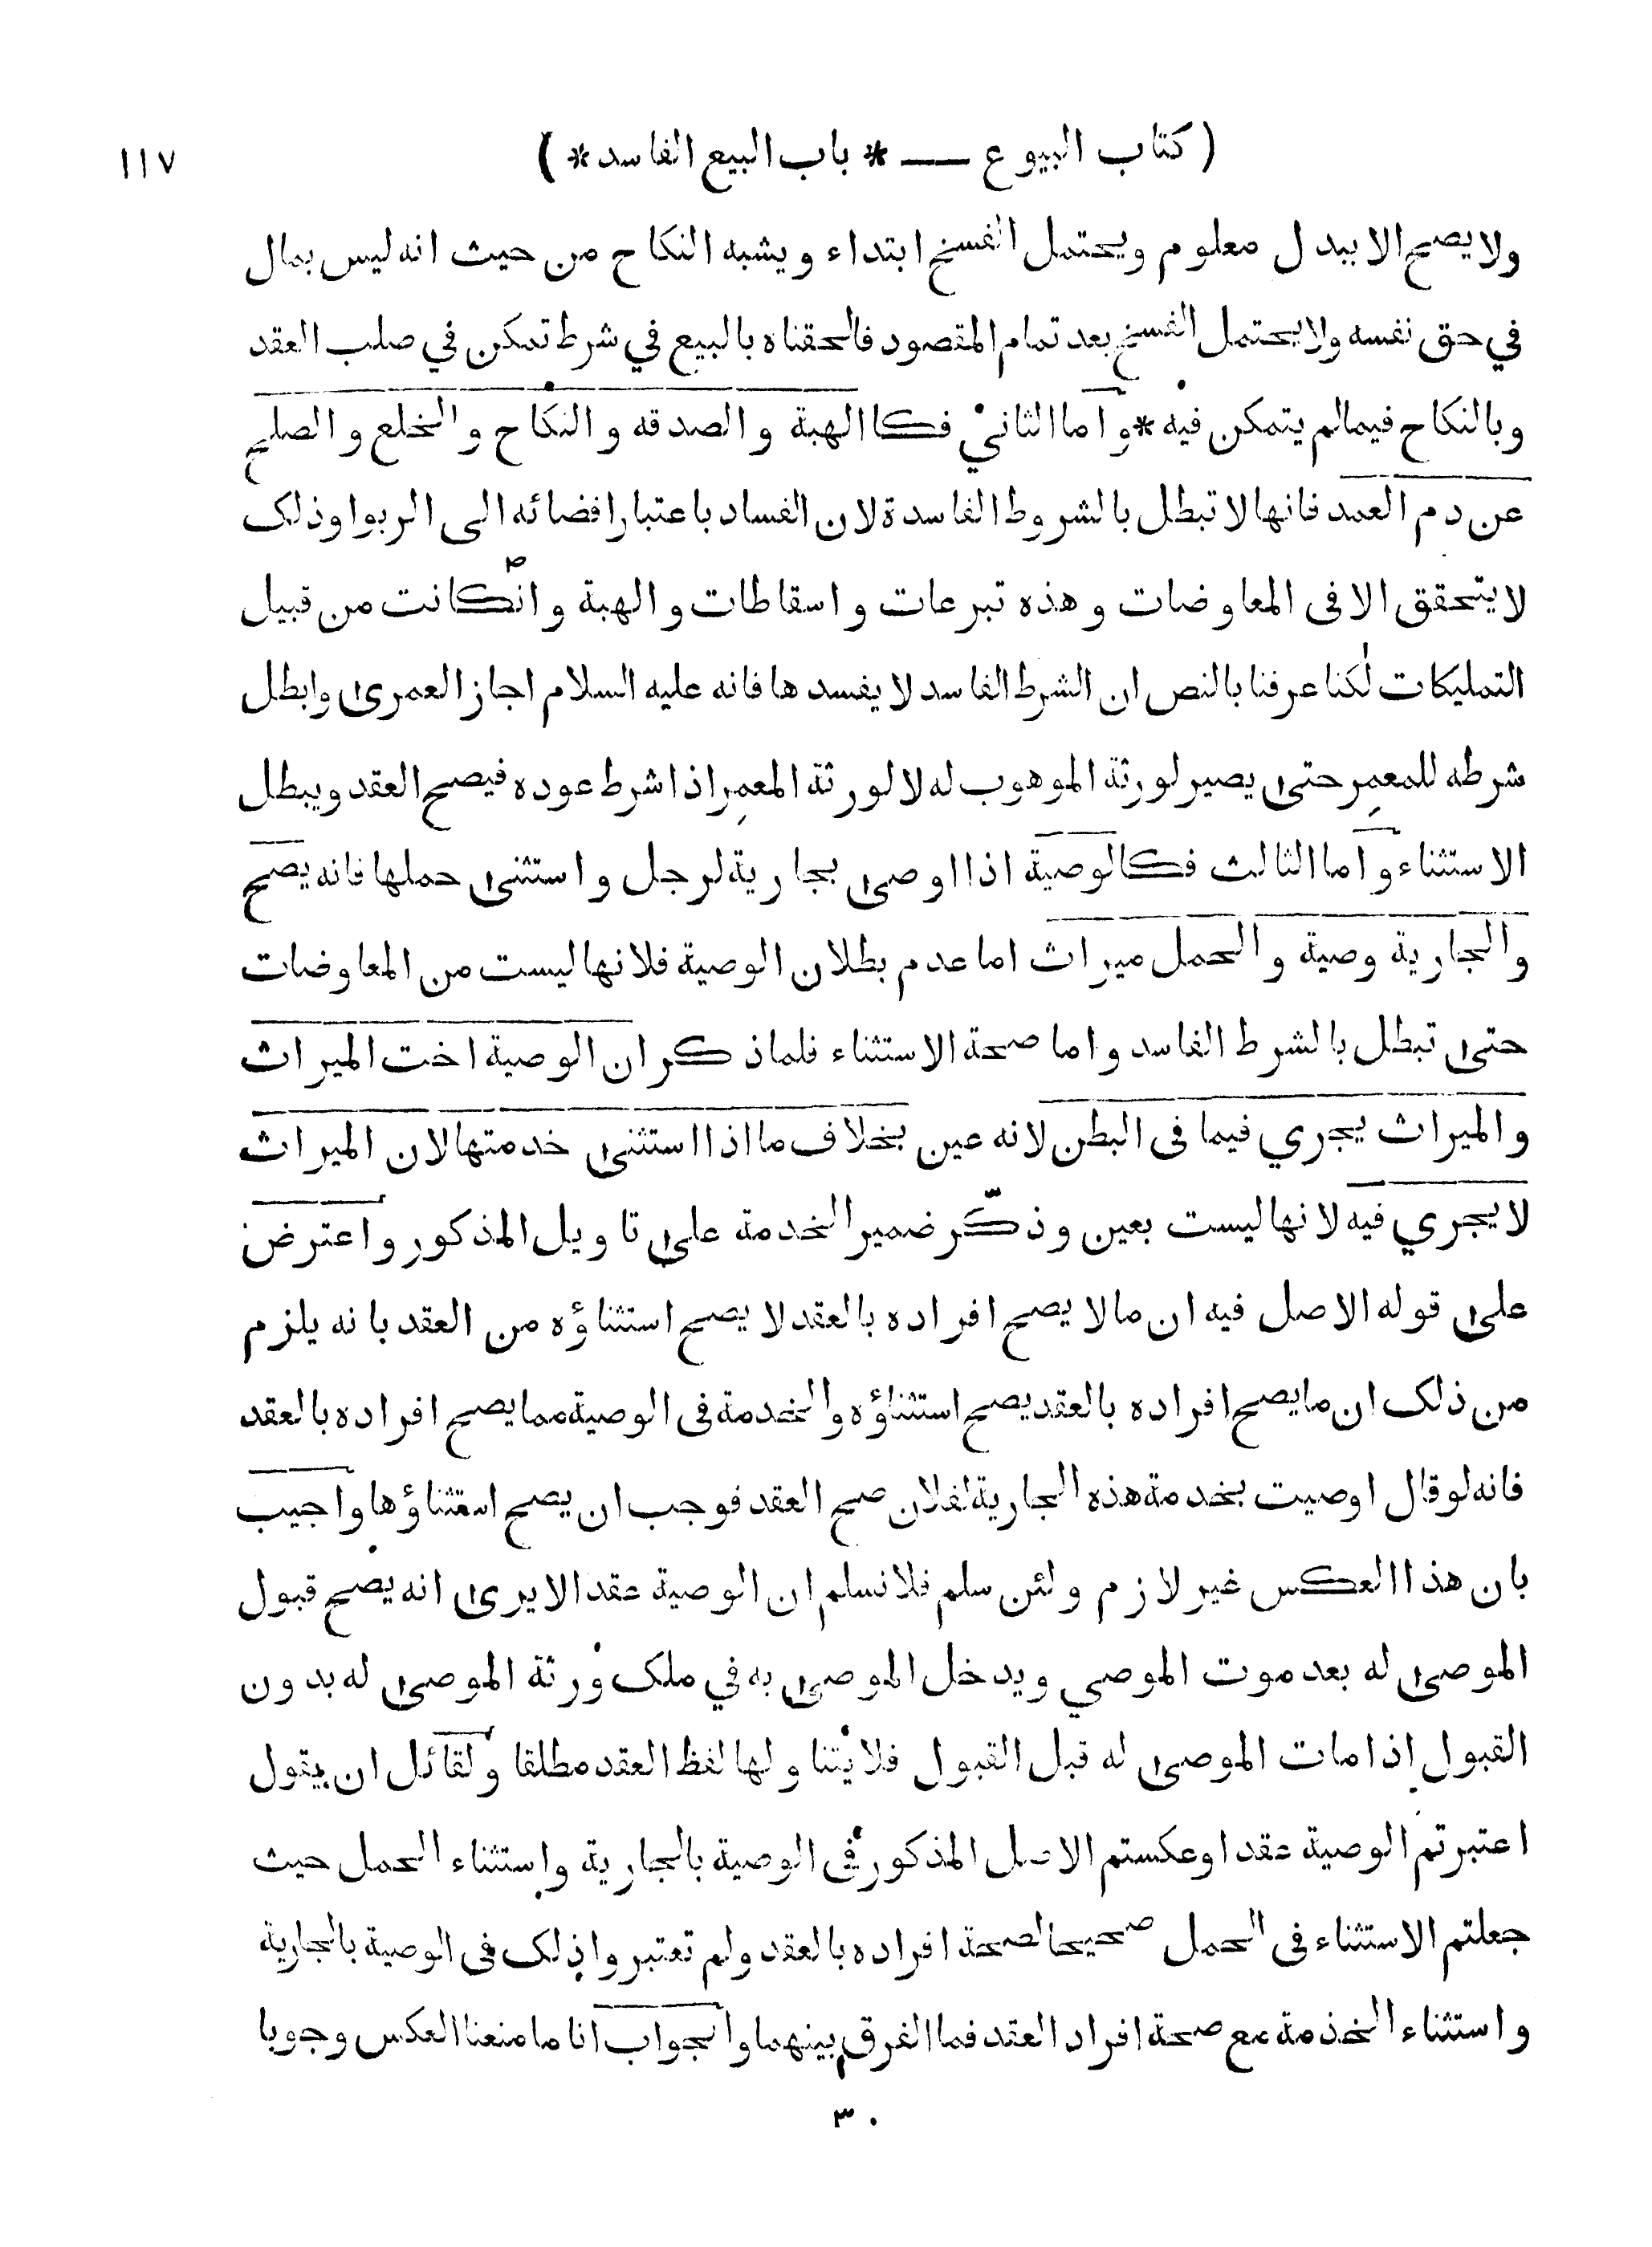 ( كتاب البيوع — * باب البيع الفاسد * ) ١١٧
ولا يصح الا ببدل معلوم ويحتمل الفسخ ابتداء ويشبه النكاح من حيث انه ليس بمال
في حق نفسه ولا يحتمل الفسخ بعد تمام المقصود فالحقناه بالبيع في شرط تمكن في صلب العقد
وبالنكاح فيما لم يتمكن فيه * واما الثاني فكا الهبة والصدقه والنكاح والخلع والصلح
عن دم العمد فانها لا تبطل بالشروط الفاسدة لان الفساد باعتبار افضائه الى الربوا وذلك
لا يتحقق الا فى المعاوضات وهذه تبرعات واسقاطات والهبة وان كانت من قبيل
التمليكات لكنا عرفنا بالنص ان الشرط الفاسد لا يفسدها فانه عليه السلام اجاز العمرى وابطل
شرطه للمعمِر حتى يصير لورثة الموهوب له لا لورثة المعمِر اذا شرط عوده فيصح العقد ويبطل
الاستثناء واما الثالث فكالوصية اذا اوصى بجارية لرجل واستثنى حملها فانه يصح
والجارية وصية والحمل ميراث اما عدم بطلان الوصية فلانها ليست من المعاوضات
حتى تبطل بالشرط الفاسد واما صحة الاستثناء فلما ذكر ان الوصية اخت الميراث
والميراث يجري فيما فى البطن لانه عين بخلاف ما اذا استثنى خدمتها لان الميراث
لا يجري فيه لانها ليست بعين وذكّر ضمير الخدمة على تاويل المذكور واعترض
على قوله الاصل فيه ان ما لا يصح افراده بالعقد لا يصح استثناؤه من العقد بانه يلزم
من ذلك ان ما يصح افراده بالعقد يصح استثناؤه والخدمة فى الوصية مما يصح افراده بالعقد
فانه لو قال اوصيت بخدمة هذه الجارية لفلان صح العقد فوجب ان يصح استثناؤها واجيب
بان هذا العكس غير لازم ولئن سلم فلا نسلم ان الوصية عقد الا يرى انه يصح قبول
الموصى له بعد موت الموصي ويدخل الموصى به في ملك ورثة الموصى له بدون
القبول اذا مات الموصى له قبل القبول فلا يتناولها لفظ العقد مطلقا ولقائل ان يقول
اعتبرتم الوصية عقدا وعكستم الاصل المذكور فى الوصية بالجارية واستثناء الحمل حيث
جعلتم الاستثناء فى الحمل صحيحا لصحة افراده بالعقد ولم تعتبروا ذلك فى الوصية بالجارية
واستثناء الخدمة مع صحة افراد العقد فما الفرق بينهما والجواب انا ما منعنا العكس وجوبا
٣٠